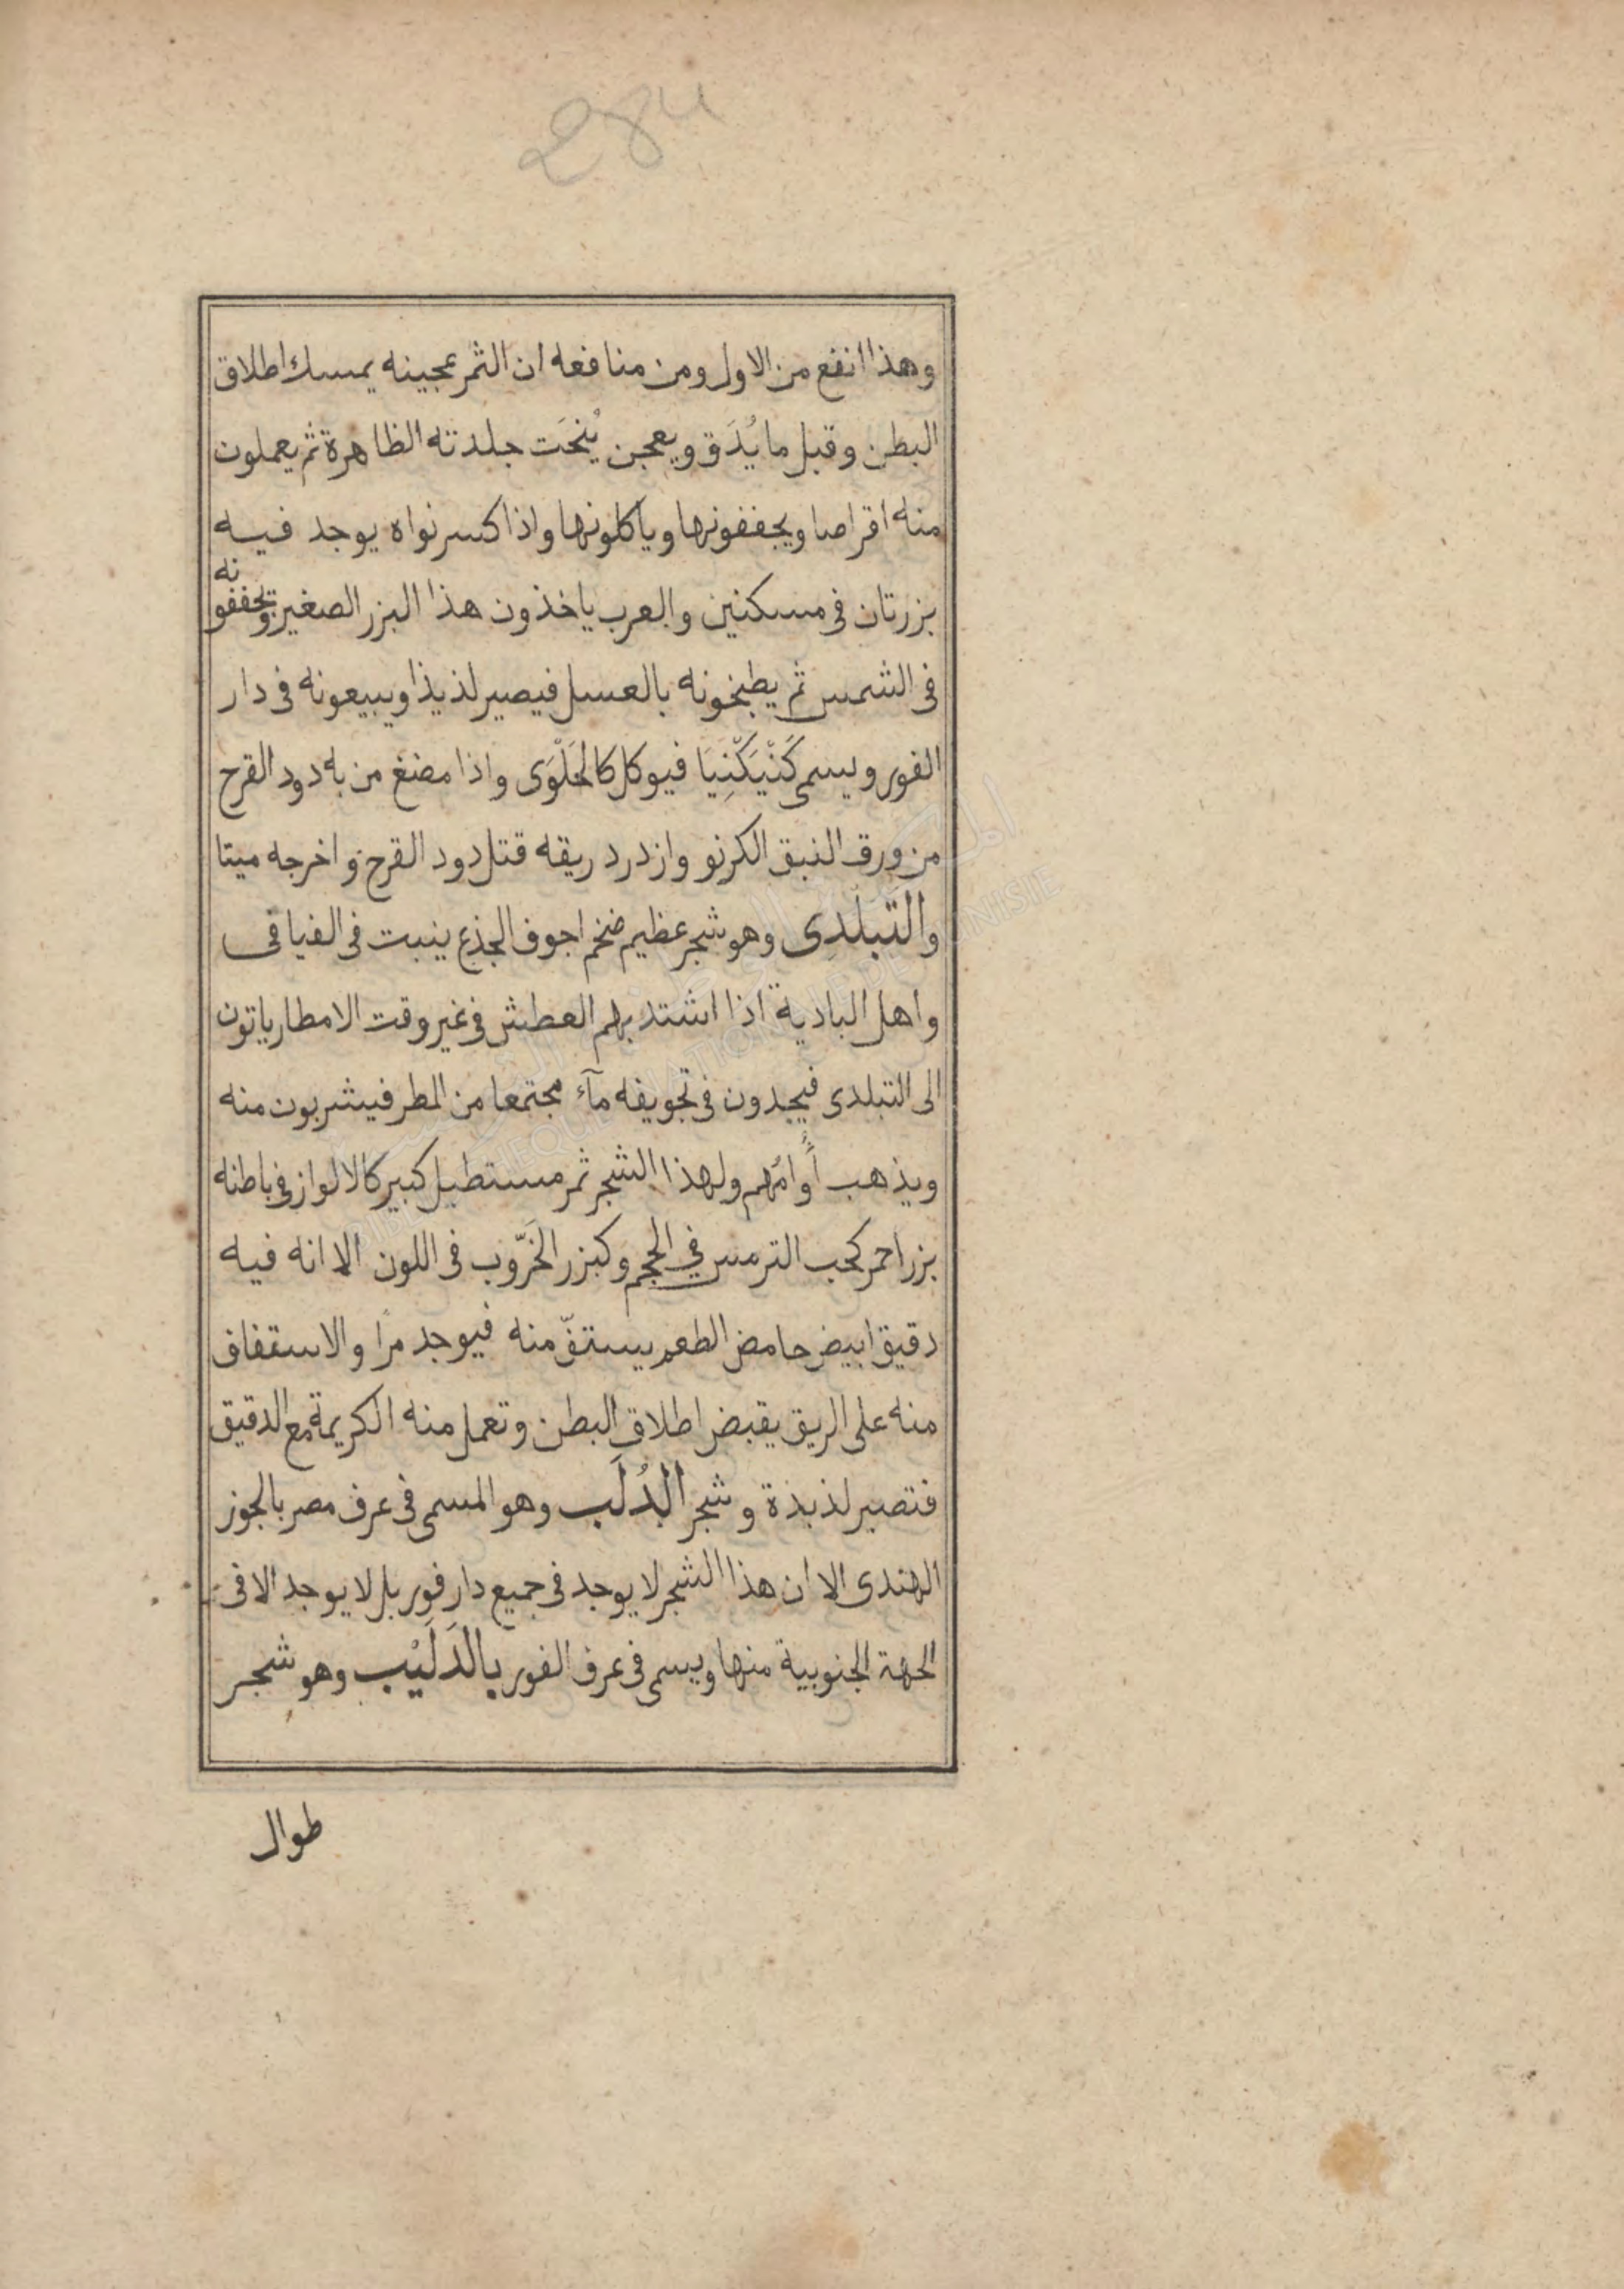 284
وهذا انفع من الاول ومن منافعه ان الثمر عجينه يمسك اطلاق
البطن وقبل ما يُدَق ويعجن يُنحَت جلدته الظاهرة ثم يعملون
منه اقراصا ويجففونها وياكلونها واذا كسر نواه يوجد فيه
بزرتان فى مسكنين والعرب ياخذون هذا البزر الصغير ويجففونه
فى الشمس ثم يطبخونه بالعسل فيصير لذيذا ويبيعونه فى دار
الفور ويسمى كَنْيَكْنِيَا فيوكل كالحَلْوَى واذا مضغ من به دود القرح
من ورق النبق الكرنو وازدرد ريقه قتل دود القرح واخرجه ميتا
والتَبَلْدِى وهو شجر عظيم ضخم اجوف الجذع ينبت فى الفيافى
واهل البادية اذا اشتد بهم العطش فى غير وقت الامطار ياتون
الى التبلدى فيجدون فى تجويفه مآء مجتمعا من المطر فيشربون منه
ويذهب أُوامُهم ولهذا الشجر ثمر مستطيل كبير كالالواز فى باطنه
بزر احمر كحب الترمس فى الحجم وكبزر الخَرّوب فى اللون الا انه فيه
دقيق ابيض حامض الطعم يستفّ منه فيوجد مزا والاستفاف
منه على الريق يقبض اطلاق البطن وتعمل منه الكريمة مع الدقيق
فتصير لذيذة وشجر الدُلَب وهو المسمى فى عرف مصر بالجوز
الهندى الا ان هذا الشجر لا يوجد فى جميع دار فور بل لا يوجد الا فى
الجهة الجنوبية منها ويسمى فى عرف الفور بالدَلَيْب وهو شجر
طوال